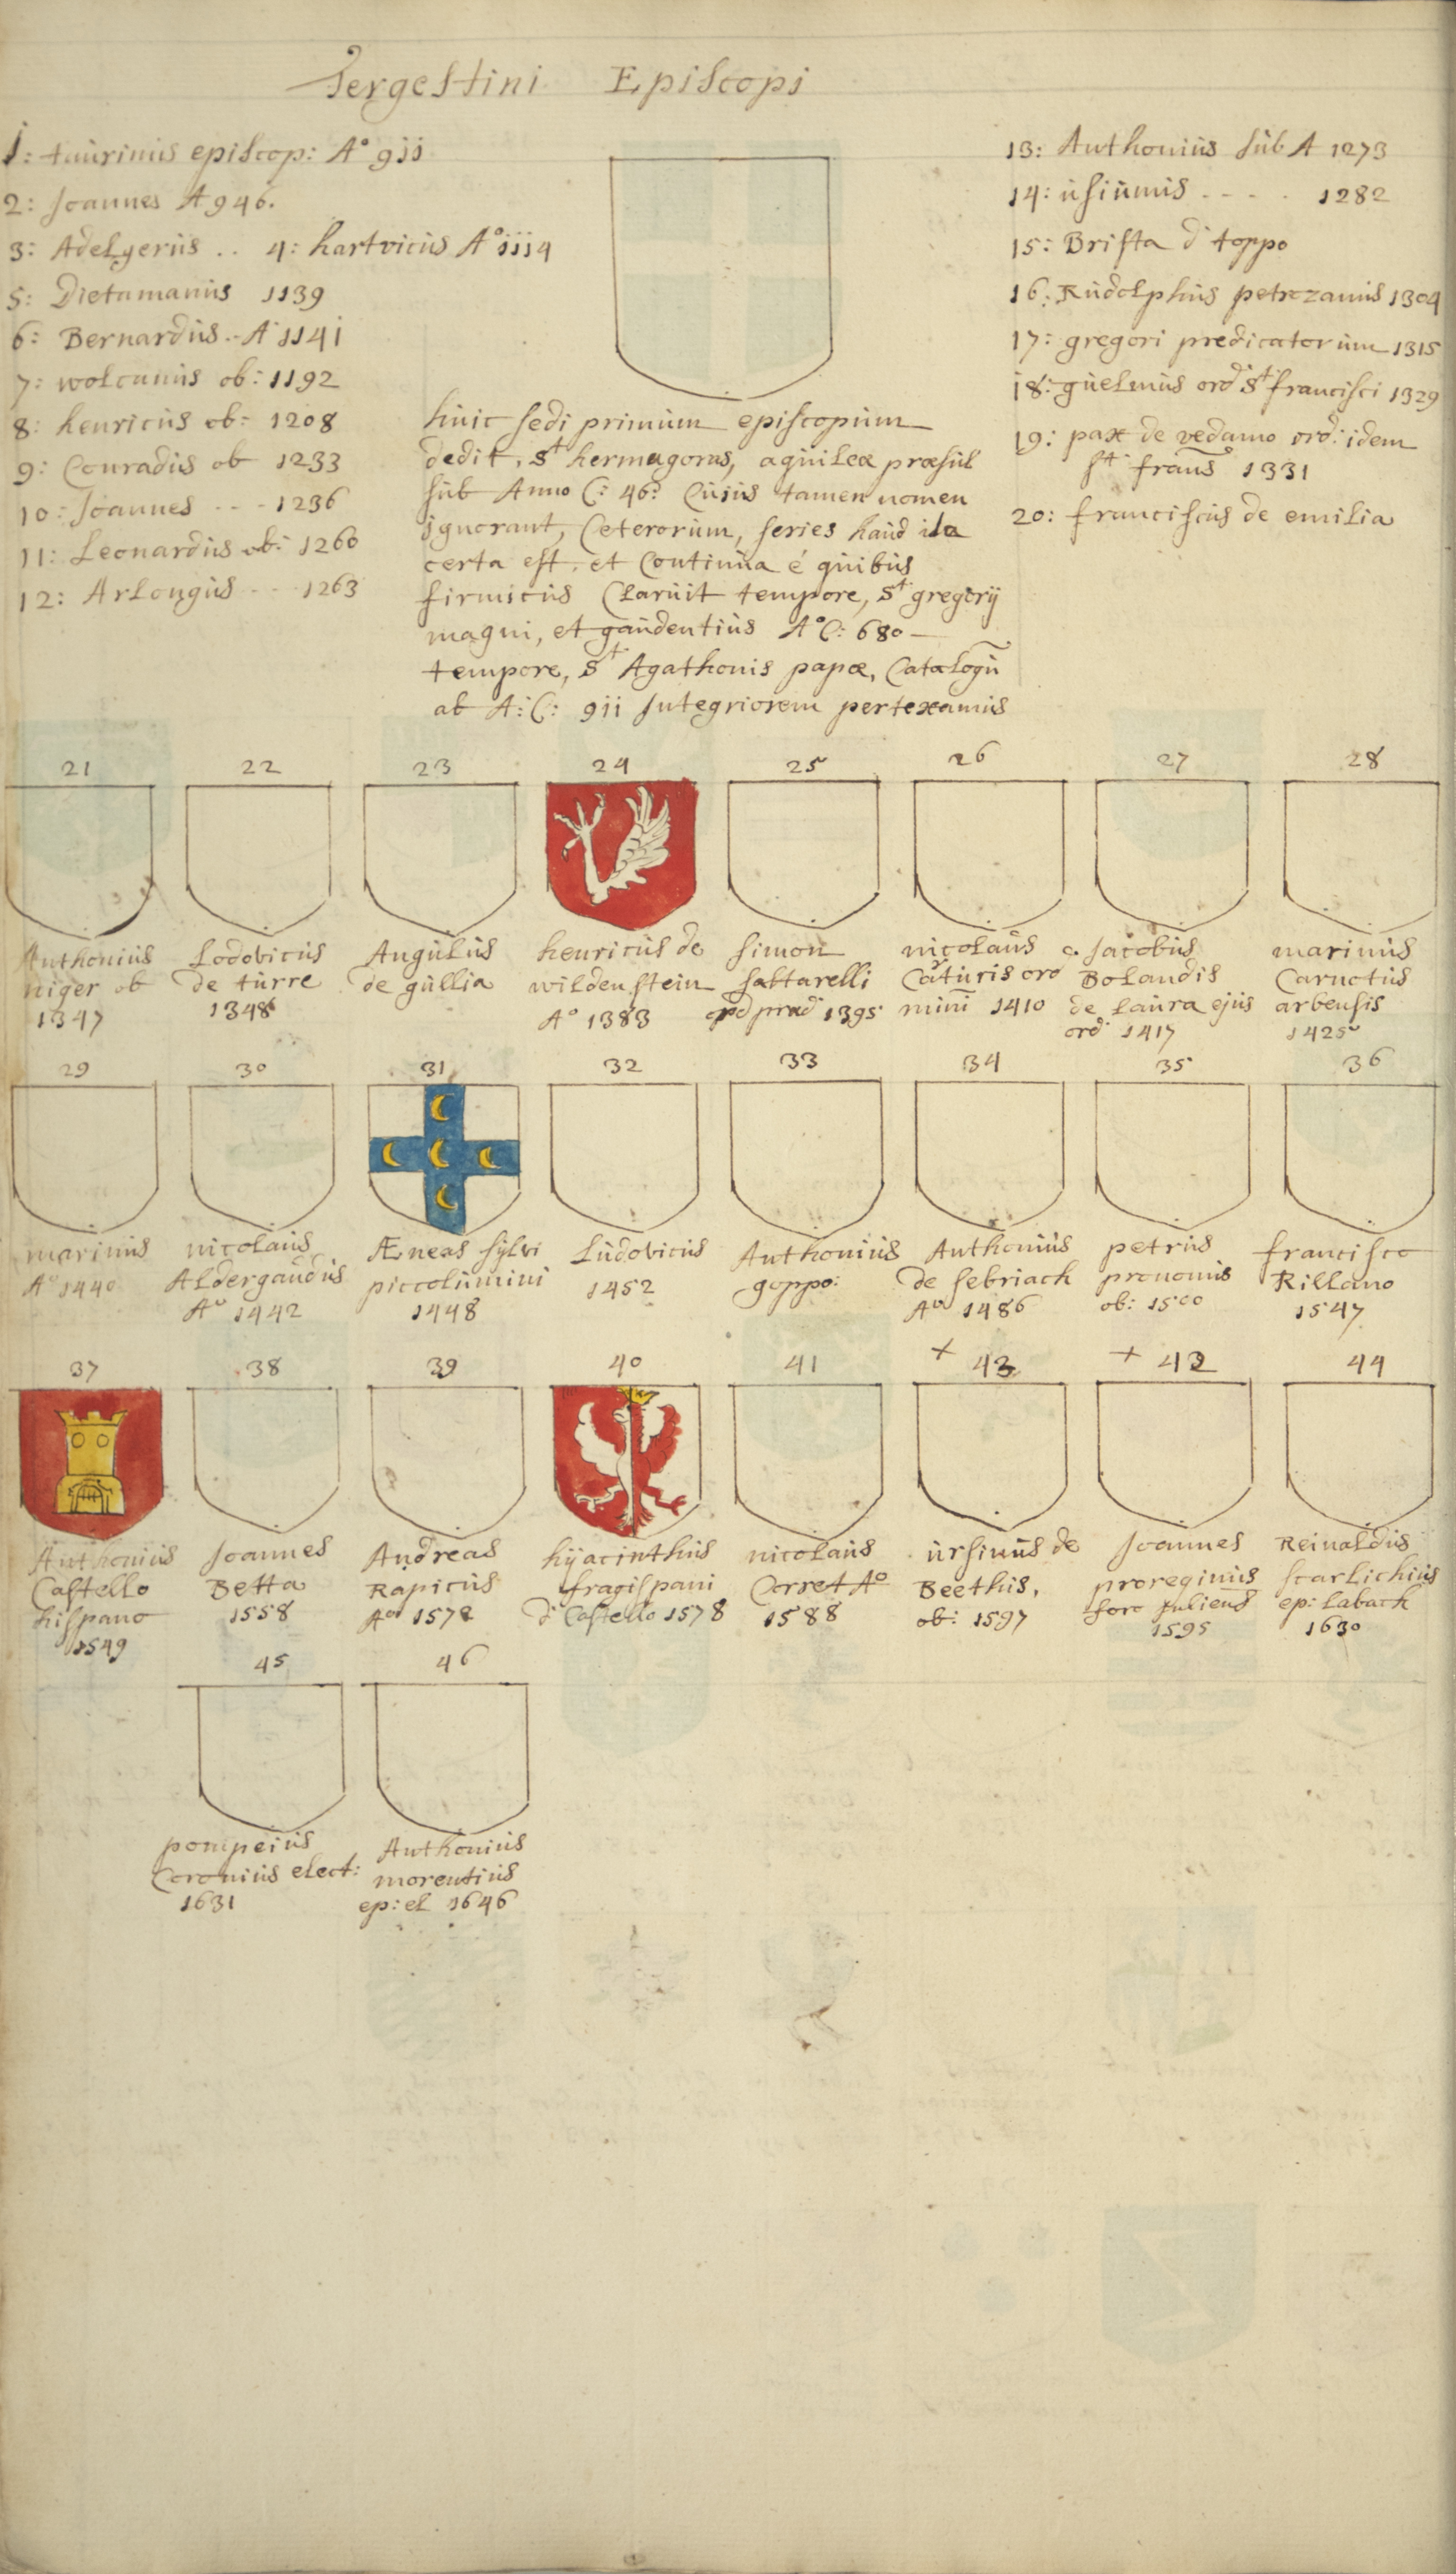 Tergestini Episcopi
1: taurinus episcop: A° 911
2: Joannes A 946.
3: Adelgerus .. 4: hartvicus A° 1114
5: Dietamanus 1139
6: Bernardus .. A° 1141
7: wolcanus ob: 1192
8: henricus ob: 1208
9: Conradus ob 1233
10: Joannes ... 1236
11: Leonardus ob: 1260
12: Arlongus ... 1263
huic sedi primum episcopum
dedit, St hermagoras, aquileæ præsul
sub Anno C: 46: Cujus tamen nomen
ignorant, Ceterorum, series haud ita
certa est. et Continua é quibus
firmicus Claruit tempore, St gregorij
magni, et gaudentius A° C: 680 —
tempore, St Agathonis papæ, Catalogu̅
ab A: C: 911 Integriorem pertexamus
13: Anthonius sub A 1273
14: usiumus - - - . 1282
15: Brista d' toppo
16: Rudolphus petrezanus 1304
17: gregori predicatorum 1315
18: guelmus ord St francisci 1329
19: pax de vedamo ord: idem
St: frans 1331
20: franciscus de emilia
21 22 23 24 25 26 27 28
Anthonius
niger ob
1347
Lodovicus
de turre
1348
Angulus
de gullia
henricus de
wildenstein
A° 1383
simon
saltarelli
ord præd 1395
nicolaus c.
Carturis ord
mini 1410
Jacobus
Bolandis
de Laura ejus
ord: 1417
marinus
Carnotus
arbensis
1425
29 30 31 32 33 34 35 36
marinus
A° 1440
nicolaus
Aldergaudus
A° 1442
Æneas sylvi
piccolumini
1448
Ludovicus
1452
Anthonius
goppo:
Anthonius
de sebriach
A° 1486
petrus
pronomus
ob: 1500
francisco
Rillano
1547
37 38 39 40 41 + 43 + 42 44
Anthonius
Castello
hispano
1549
Joannes
Betta
1558
Andreas
Rapicus
A° 1572
hyacinthus
fragispani
d' Castello 1578
nicolaus
Corret A°
1588
ursinus de
Beethis,
ob: 1597
Joannes
proreginus
foro Juliens
1595
Reinaldus
scarlichius
ep: Laback
1630
45 46
pompeius
Coronius elect:
1631
Anthonius
morentius
ep: el 1646